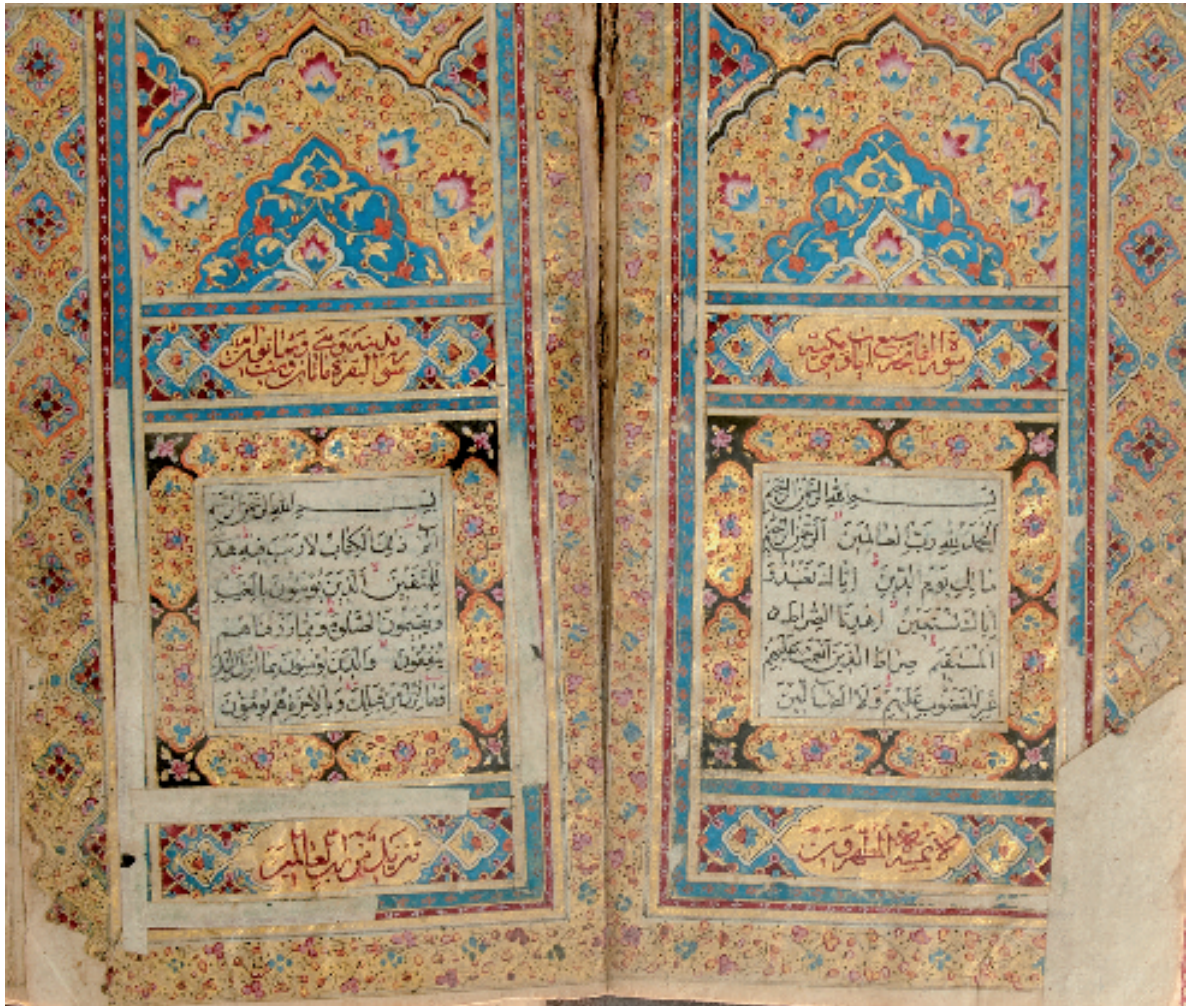 سورة الفاتحة سبع ايات وهي مكية
بسم الله الرحمن الرحيم
الحمد لله رب العالمين الرحمن الرحيم
مالك يوم الدين اياك نعبد و
اياك نستعين اهدنا الصراط
المستقيم صراط الذين انعمت عليهم
غير المغضوب عليهم ولا الضالين
لا يمسه الا المطهرون
سورة البقرة مائتان وست وثمانون اية
بسم الله الرحمن الرحيم
الم ذلك الكتاب لا ريب فيه هدى
للمتقين الذين يؤمنون بالغيب
ويقيمون الصلوة ومما رزقناهم
ينفقون والذين يؤمنون بما انزل اليك
وما انزل من قبلك وبالاخرة هم يوقنون
تنزيل من رب العالمين